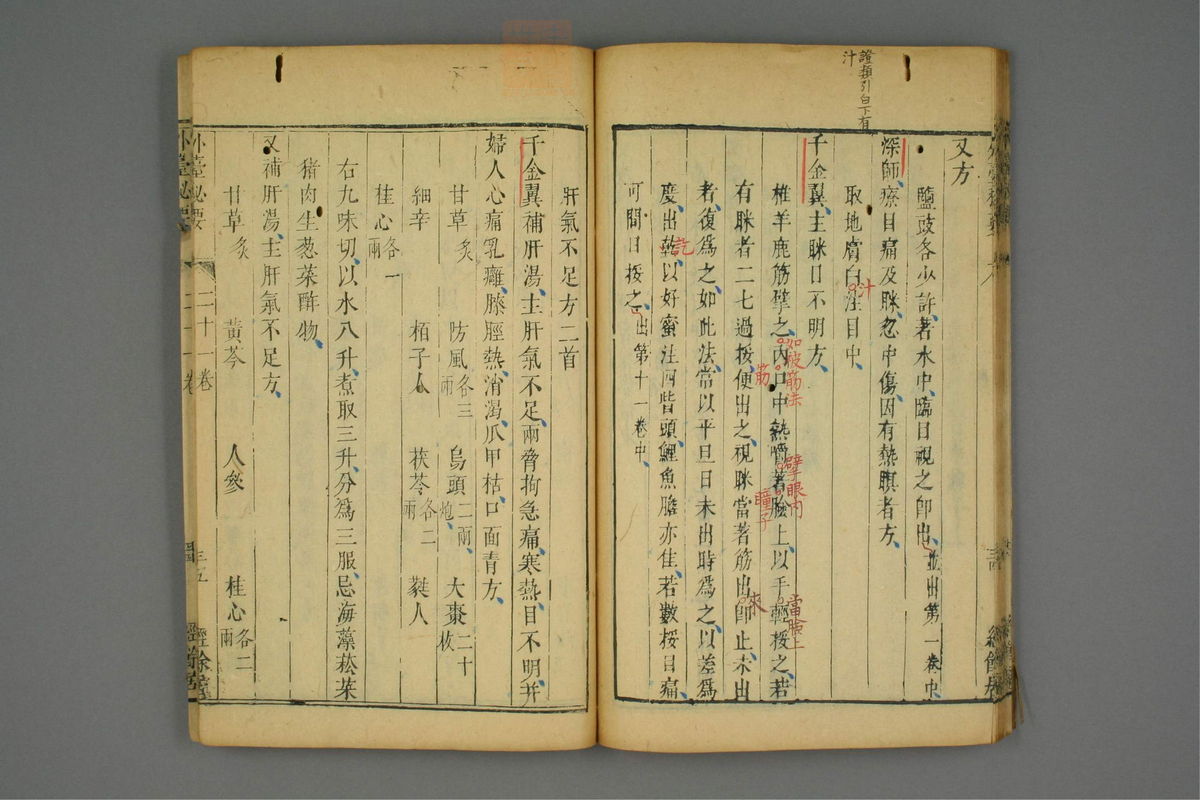 證類引白下有
汁
又方
鹽豉各少許著水中臨目視之卽出並出第一卷中
深師療目痛及眯忽中傷因有熱瞑者方
取地膚白注目中
汁
千金翼主眯目不明方
椎羊鹿筋擘之內口中熟嚼著瞼上以手輕挼之若
如被筋法
筋
擘眼內
瞳子
當瞼上
有眯者二七過挼便出之視眯當著筋出卽止未出
來
者復爲之如此法常以平旦日未出時爲之以差爲
度出乾以好蜜注四眥頭鯉魚膽亦佳若數挼目痛
訖
可間日挼之出第十一卷中
肝氣不足方二首
千金翼補肝湯主肝氣不足兩脅拘急痛寒熱目不明并
婦人心痛乳癰膝脛熱消渴爪甲枯口面青方
甘草炙 防風各三兩 烏頭二兩炮 大棗二十枚
細辛 栢子人 茯苓各二兩 蕤人
桂心各一兩
右九味切以水八升煮取三升分爲三服忌海藻菘菜
猪肉生葱菜酢物
又補肝湯主肝氣不足方
甘草炙 黃芩 人參 桂心各二兩
外臺祕要 二十一卷 三五 經餘居